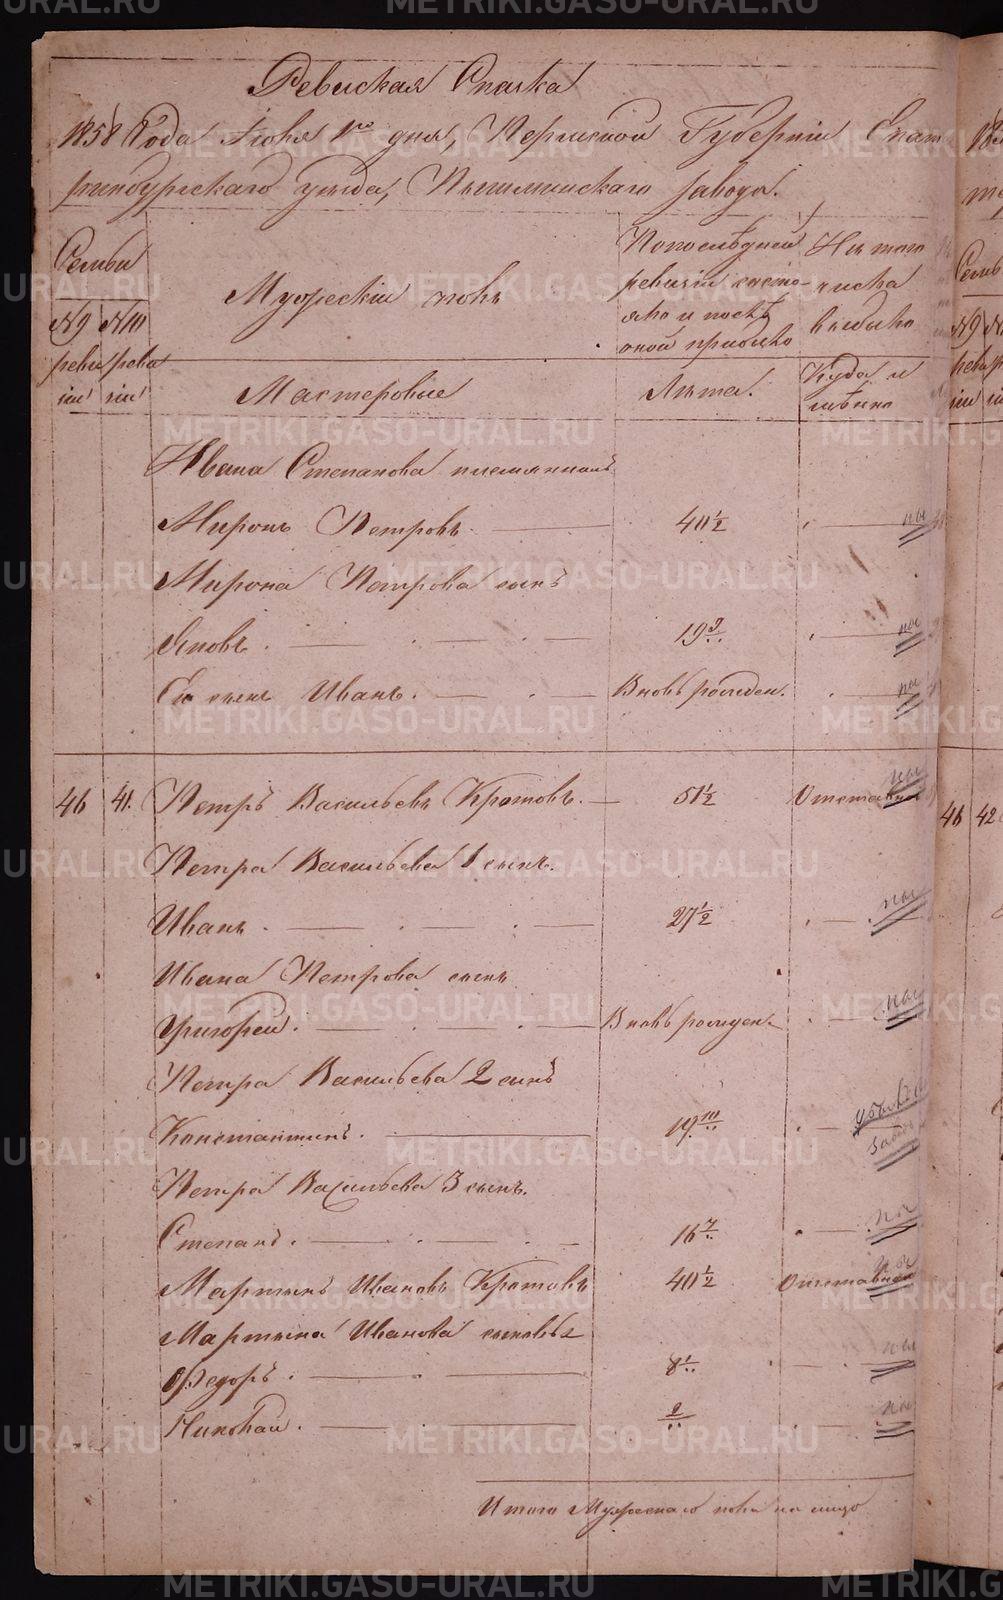 METRIKI.GASO-URAL.RU
Ревиская Сказка
1858 Года Июня 1го дня, Пермской Губерніи Екате
ринбургскаго уезда, Пышминскаго завода.
Семьи
№ 9 ревизіи
№ 10 ревизіи
Мужескій полъ
По последней ревизіи состояло и после оной прибыло
Изъ того числа выбыло
Мастеровые
Лѣта.
Куда и
Ивана Степанова племянникъ
Миронъ Петровъ. 40 1/2
Мирона Петрова сынъ
Яковъ. 19
Его сынъ Иванъ. Вновь рожден.
46 41. Петръ Васильевъ Кротовъ. 51 1/2 Отставной
Петра Васильева 1 сынъ.
Иванъ. 27 1/2
Ивана Петрова сынъ
Григорей. Вновь рожден.
Петра Васильева 2 сынъ
Константинъ. 19
Петра Васильева 3 сынъ.
Степанъ. 16
Мартынъ Ивановъ Кротовъ 40 1/2 Отставной
Мартына Иванова сыновья
Федоръ. 8
Николай. 2
Итого Мужескаго пола на лицо
46 42